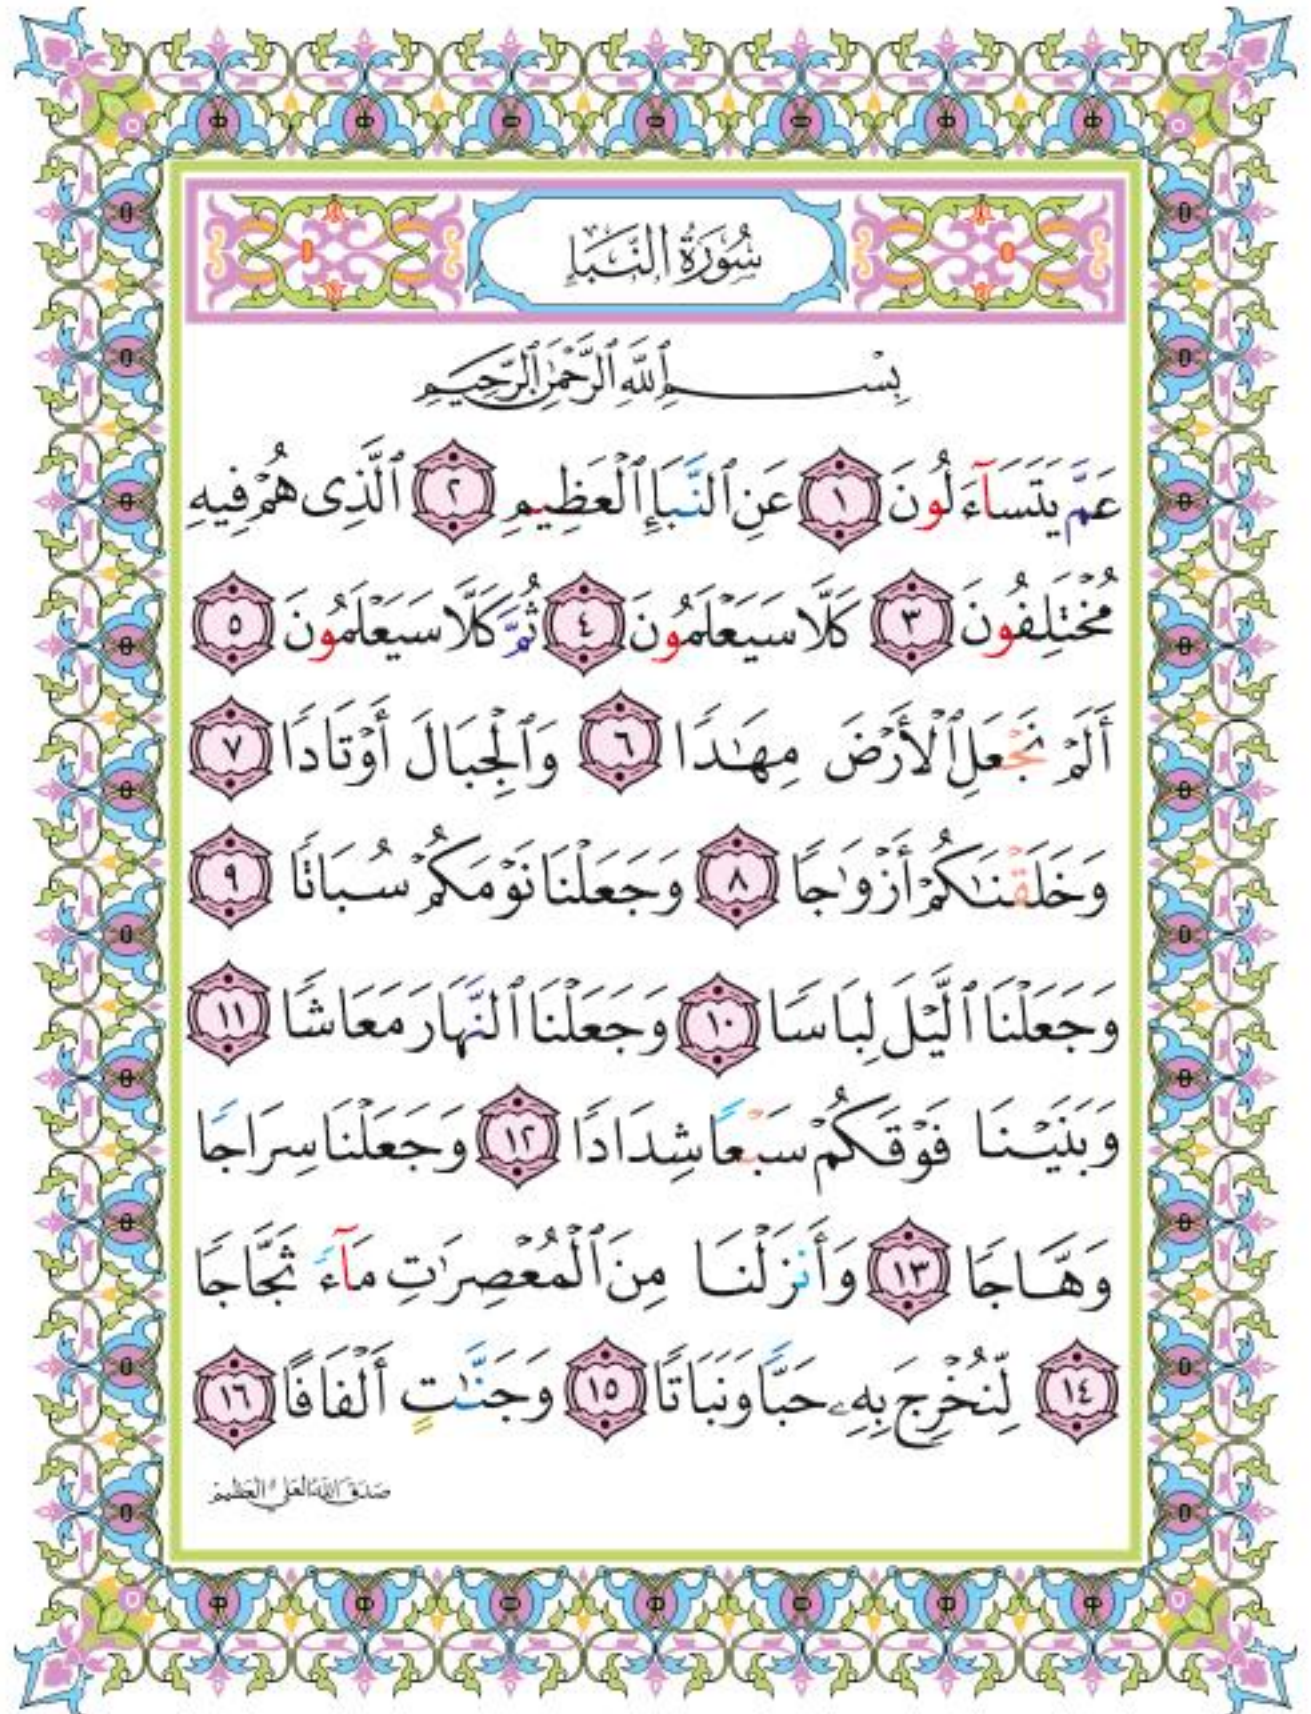 سُورَةُ النَّبَإِ
بِسْمِ ٱللَّهِ ٱلرَّحْمَٰنِ ٱلرَّحِيمِ
عَمَّ يَتَسَآءَلُونَ ١ عَنِ ٱلنَّبَإِ ٱلْعَظِيمِ ٢ ٱلَّذِى هُمْ فِيهِ
مُخْتَلِفُونَ ٣ كَلَّا سَيَعْلَمُونَ ٤ ثُمَّ كَلَّا سَيَعْلَمُونَ ٥
أَلَمْ نَجْعَلِ ٱلْأَرْضَ مِهَٰدًا ٦ وَٱلْجِبَالَ أَوْتَادًا ٧
وَخَلَقْنَٰكُمْ أَزْوَٰجًا ٨ وَجَعَلْنَا نَوْمَكُمْ سُبَاتًا ٩
وَجَعَلْنَا ٱلَّيْلَ لِبَاسًا ١٠ وَجَعَلْنَا ٱلنَّهَارَ مَعَاشًا ١١
وَبَنَيْنَا فَوْقَكُمْ سَبْعًا شِدَادًا ١٢ وَجَعَلْنَا سِرَاجًا
وَهَّاجًا ١٣ وَأَنزَلْنَا مِنَ ٱلْمُعْصِرَٰتِ مَآءً ثَجَّاجًا
١٤ لِّنُخْرِجَ بِهِۦ حَبًّا وَنَبَاتًا ١٥ وَجَنَّٰتٍ أَلْفَافًا ١٦
صَدَقَ اللهُ العَلِيُّ العَظِيمُ